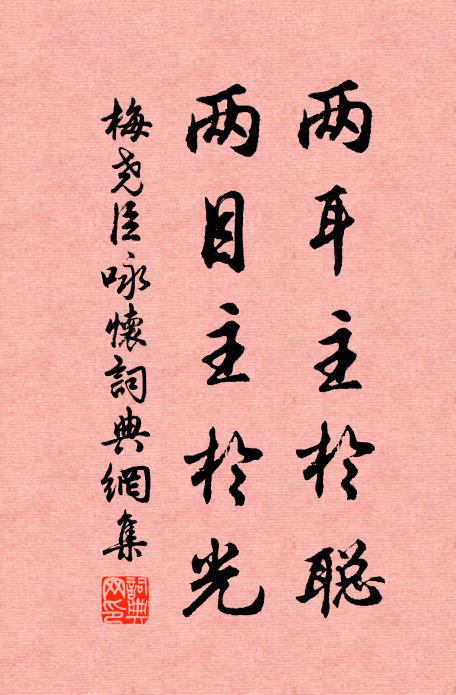 两耳主於聪
两目主於光
梅尧臣咏懷詞典網集
詞典網印